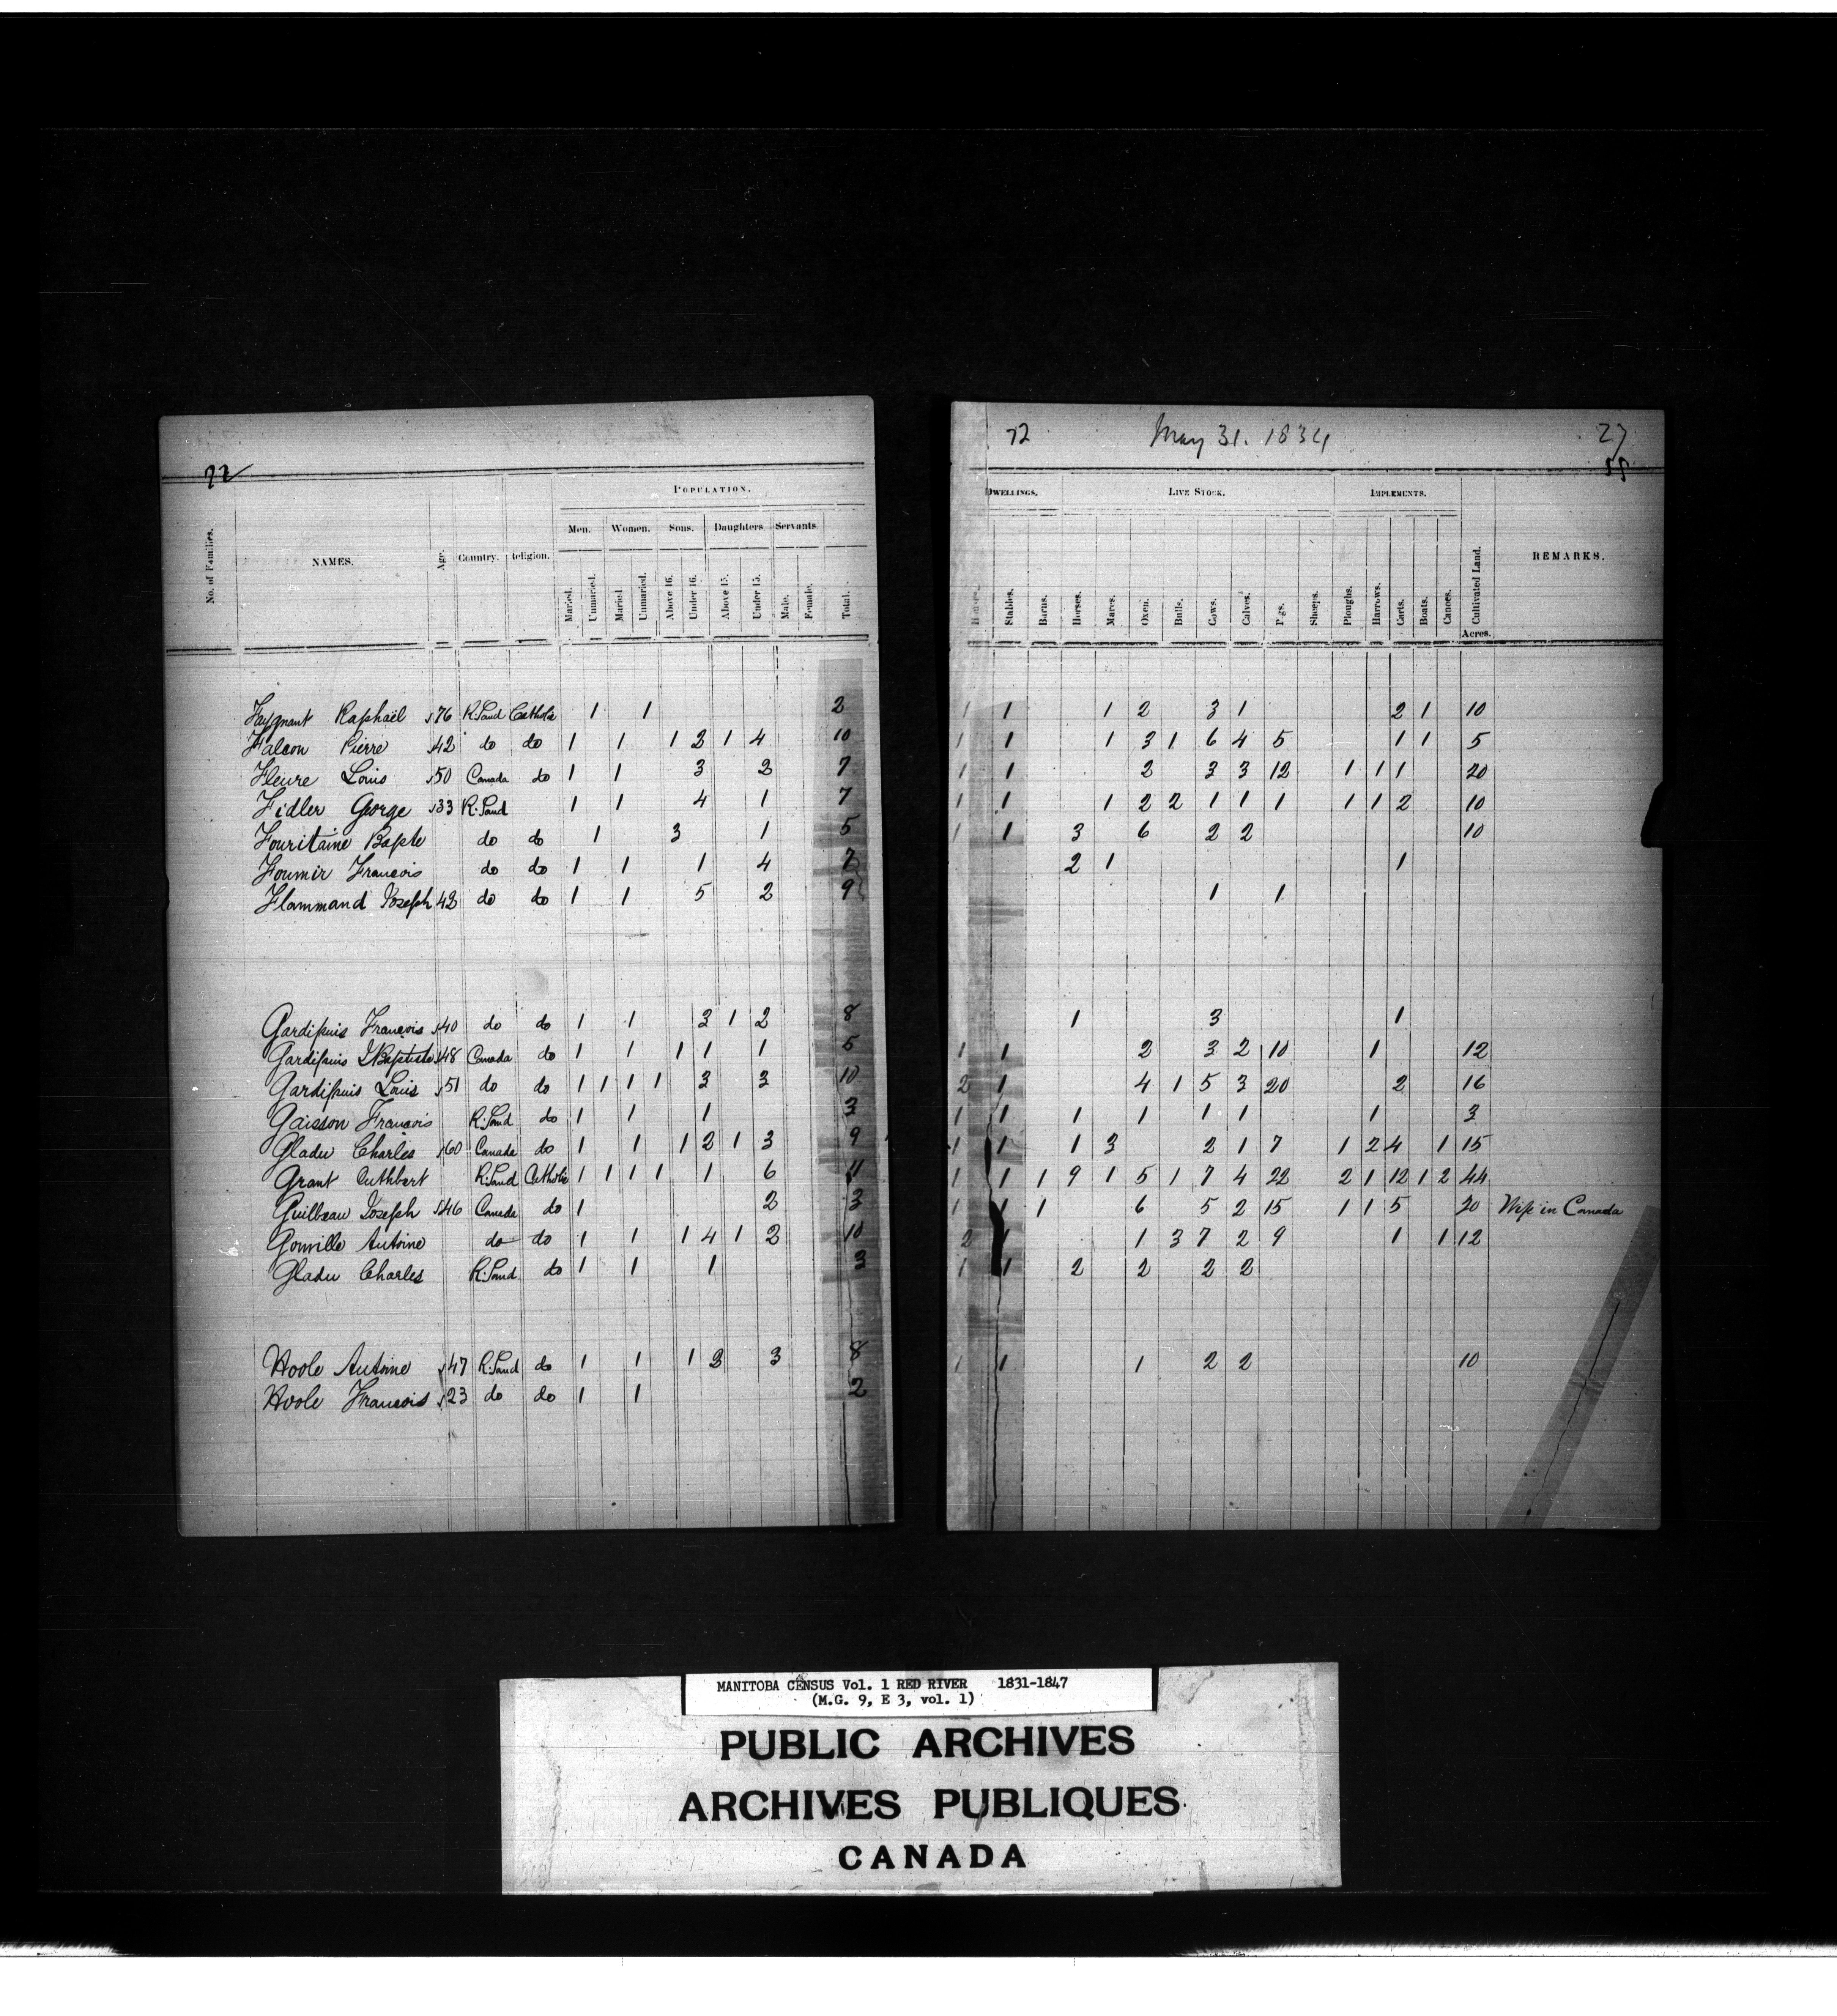 72
POPULATION.
Men. Women. Sons. Daughters Servants
No. of Families. NAMES. Age. Country. Religion. Married. Unmarried. Married. Unmarried. Above 16. Under 16. Above 15. Under 15. Male. Female. Total.
Raphaël 76 R. Land Catholic 1 1 2
Falcon Pierre 42 do do 1 1 1 2 1 4 10
Fleure Louis 50 Canada do 1 1 3 2 7
Fidler George 33 R. Land 1 1 4 1 7
Bapte do do 1 3 1 5
François do do 1 1 1 4 7
Flammand Joseph 42 do do 1 1 5 2 9
Gardipuis François 40 do do 1 1 3 1 2 8
Gardipuis J Baptiste 48 Canada do 1 1 1 1 1 5
Gardipuis Louis 51 do do 1 1 1 1 3 3 10
Gaisson François R. Land do 1 1 1 3
Gladu Charles 60 Canada do 1 1 1 2 1 3 9
Grant Cuthbert R. Land Catholic 1 1 1 1 1 6 11
Guilbeau Joseph 46 Canada do 1 2 3
Gonville Antoine do do 1 1 1 4 1 2 10
Gladu Charles R. Land do 1 1 1 3
Hoole Antoine 47 R. Land do 1 1 1 2 3 8
Hoole François 23 do do 1 1 2
72 May 31. 1834 27
55
DWELLINGS. LIVE STOCK. IMPLEMENTS.
Houses. Stables. Barns. Horses. Mares. Oxen. Bulls. Cows. Calves. Pigs. Sheeps. Ploughs. Harrows. Carts. Boats. Canoes. Cultivated Land. REMARKS.
Acres.
1 1 1 2 3 1 2 1 10
1 1 1 3 1 6 4 5 1 1 5
1 1 2 3 3 12 1 1 1 20
1 1 1 2 2 1 1 1 1 1 2 10
1 1 3 6 2 2 10
2 1 1
1 1
1 3 1
1 1 2 3 2 10 1 12
2 1 4 1 5 3 20 2 16
1 1 1 1 1 1 1 3
1 1 1 3 2 1 7 1 2 4 1 15
1 1 1 9 1 5 1 7 4 22 2 1 12 1 2 44
1 1 1 6 5 2 15 1 1 5 20 Wife in Canada
2 1 1 3 7 2 9 1 1 12
1 1 2 2 2 2
1 1 1 2 2 10
MANITOBA CENSUS Vol. 1 RED RIVER 1831-1847
(M.G. 9, E 3, vol. 1)
PUBLIC ARCHIVES
ARCHIVES PUBLIQUES
CANADA